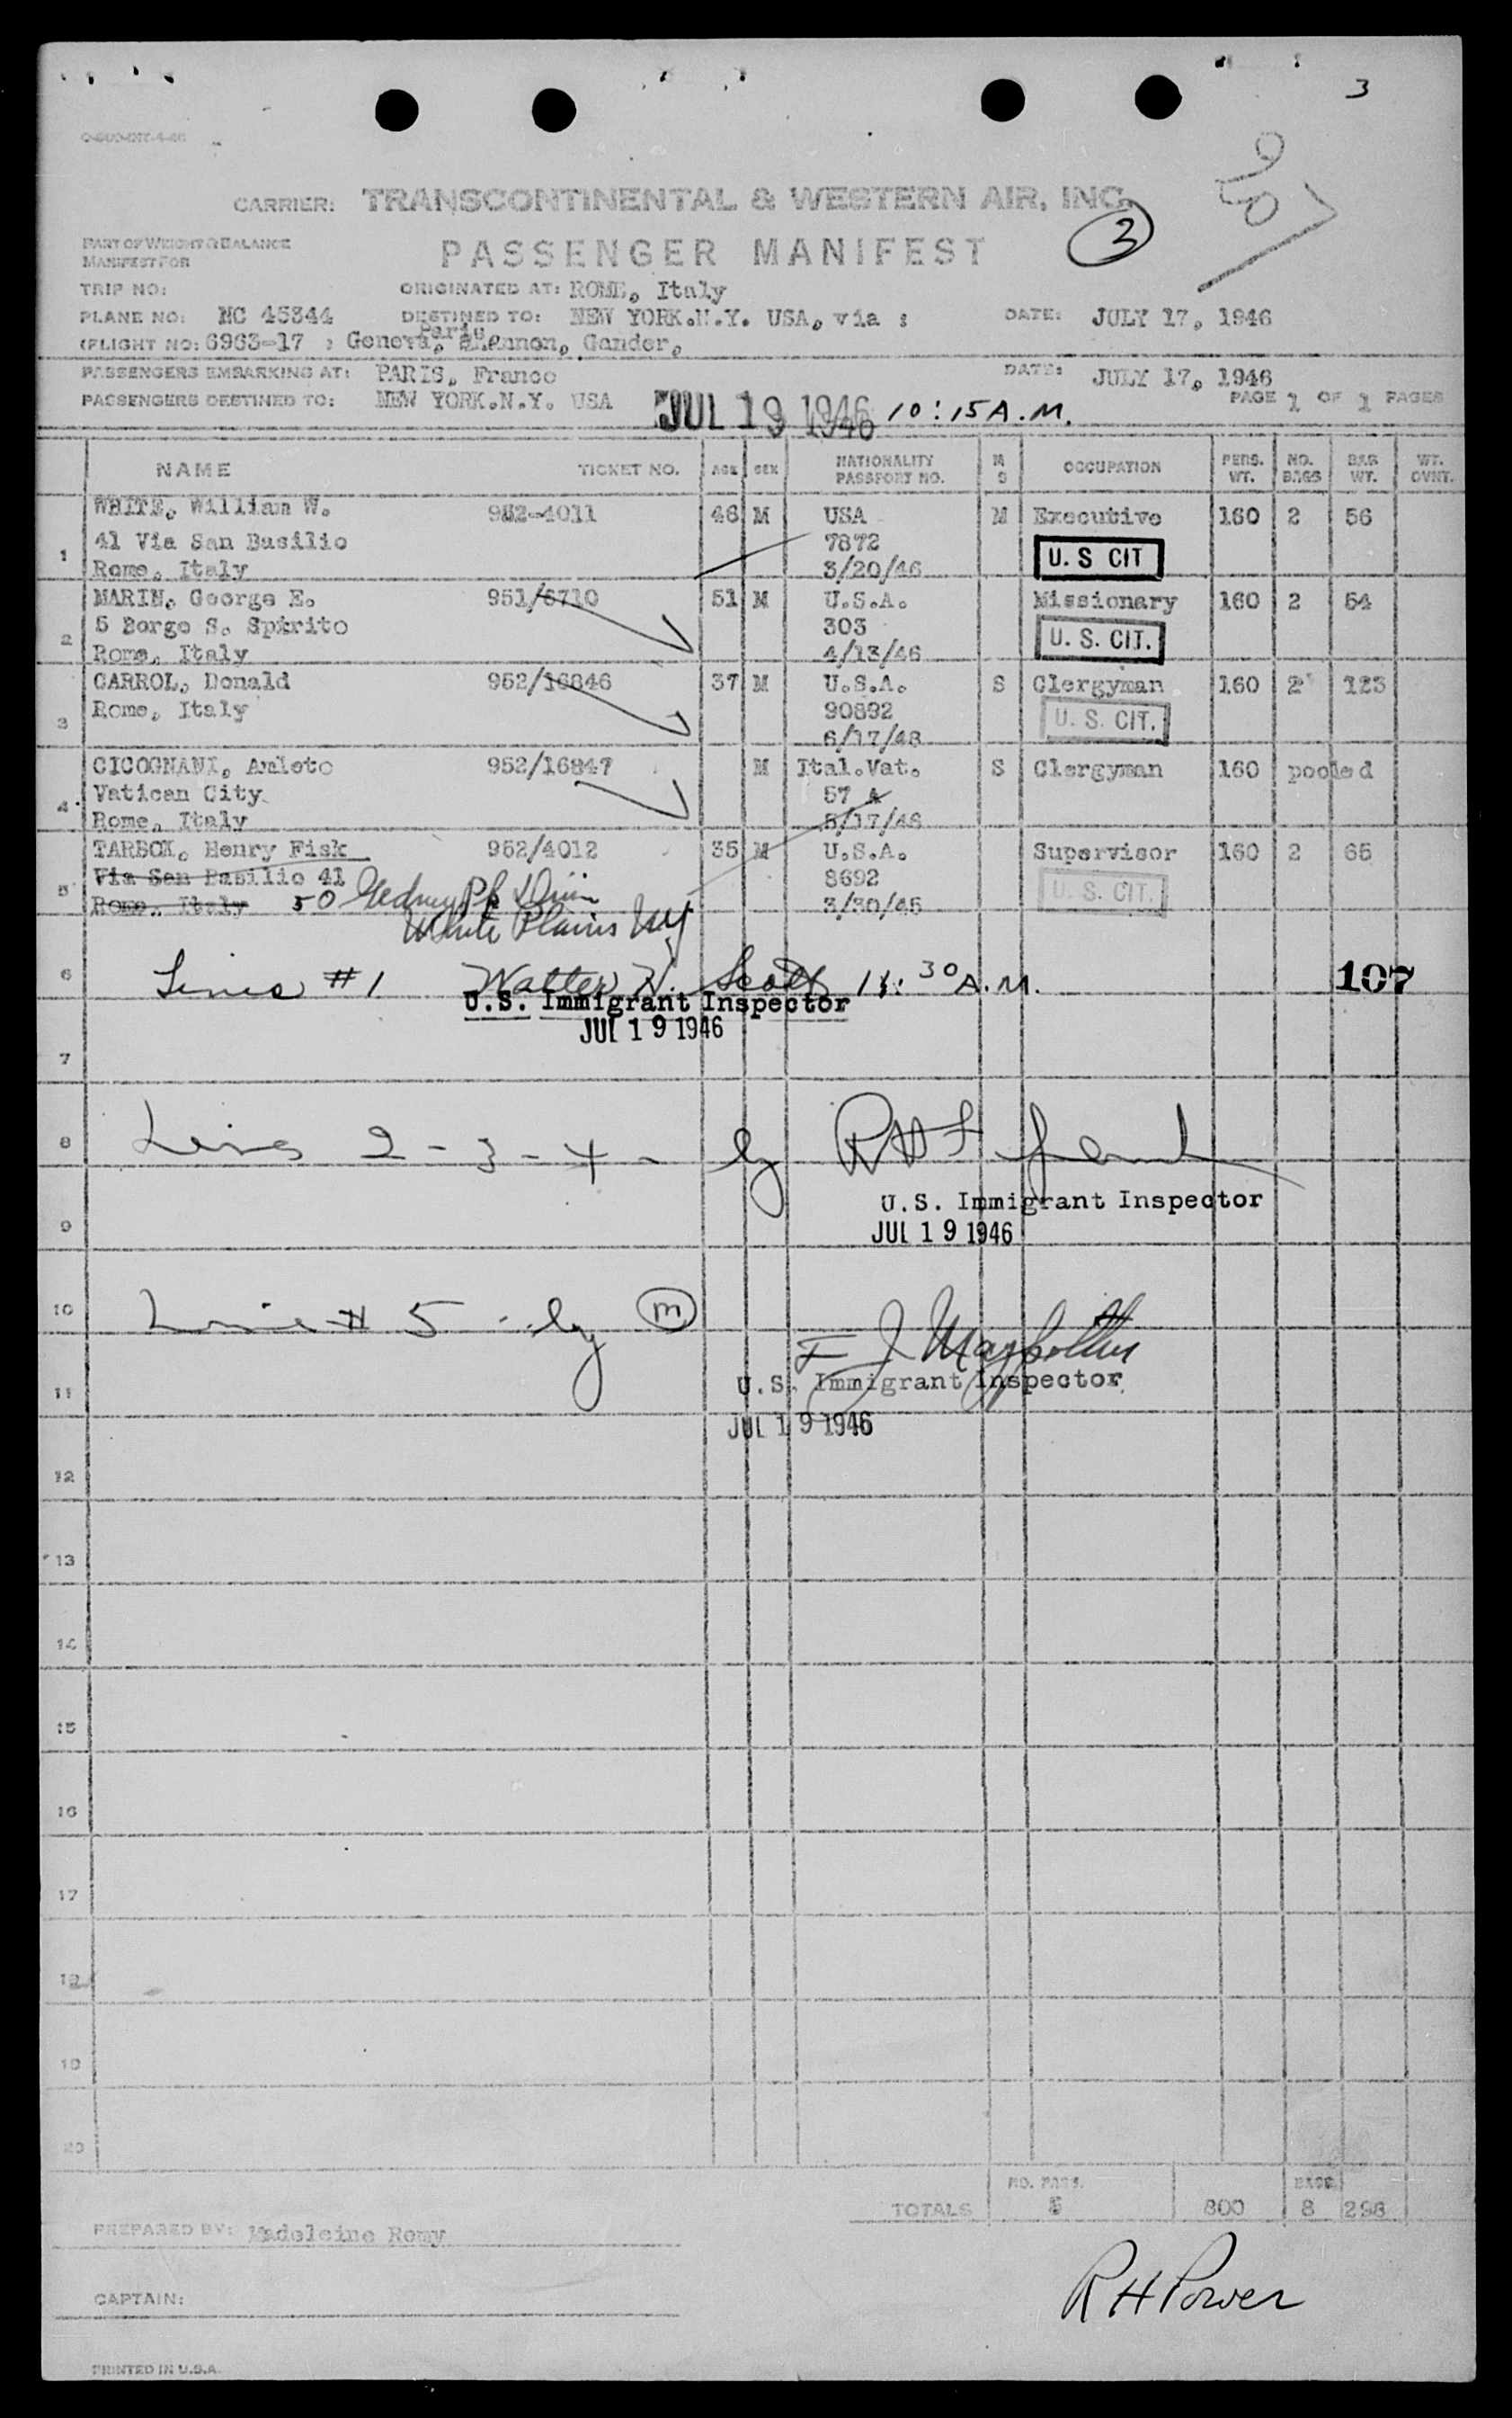 3
CARRIER: TRANSCONTINENTAL & WESTERN AIR, INC.
PART OF WEIGHT & BALANCE
MANIFEST FOR
PASSENGER MANIFEST
3
TRIP NO:
ORIGINATED AT: ROME, Italy
PLANE NO: NC 45344
DESTINED TO: NEW YORK.N.Y. USA, via :
DATE: JULY 17, 1946
(FLIGHT NO: 6963-17 : Geneva, Paris, Shannon, Gander,
PASSENGERS EMBARKING AT: PARIS, France
DATE: JULY 17, 1946
PASSENGERS DESTINED TO: NEW YORK.N.Y. USA
JUL 19 1946 10:15 A.M.
PAGE 1 OF 1 PAGES
NAME TICKET NO. AGE SEX NATIONALITY PASSPORT NO. M S OCCUPATION PERS. WT. NO. BAGS BAG WT. WT. OVWT.
1 WHITE, William W. 952-4011 46 M USA M Executive 160 2 56
41 Via San Basilio 7872 U. S CIT
Rome, Italy 3/20/46
2 MARIN, George E. 951/6710 51 M U.S.A. Missionary 160 2 54
5 Borgo S. Spirito 303 U. S. CIT.
Rome, Italy 4/13/46
3 CARROL, Donald 952/16846 37 M U.S.A. S Clergyman 160 2 123
Rome, Italy 90892 U. S. CIT.
6/17/48
4 CICOGNANI, Amleto 952/16847 M Ital.Vat. S Clergyman 160 pooled
Vatican City 57 A
Rome, Italy 5/17/46
5 TARBOX, Henry Fisk 952/4012 35 M U.S.A. Supervisor 160 2 65
Via San Basilio 41 8692 U. S. CIT.
Rome, Italy 50 Gedney 3/30/45
White Plains NY
6 Lines #1 Walter N. Scott 11:30 A.M. 107
U.S. Immigrant Inspector
JUL 19 1946
7
8 Lines 2-3-4- by
U.S. Immigrant Inspector
9 JUL 19 1946
10 Line # 5 - by m
F J
11 U.S. Immigrant Inspector
JUL 19 1946
12
13
14
15
16
17
18
19
20
NO. PASS. BAGS
TOTALS 5 800 8 298
PREPARED BY: Madeleine Remy
R H Power
CAPTAIN:
PRINTED IN U.S.A.